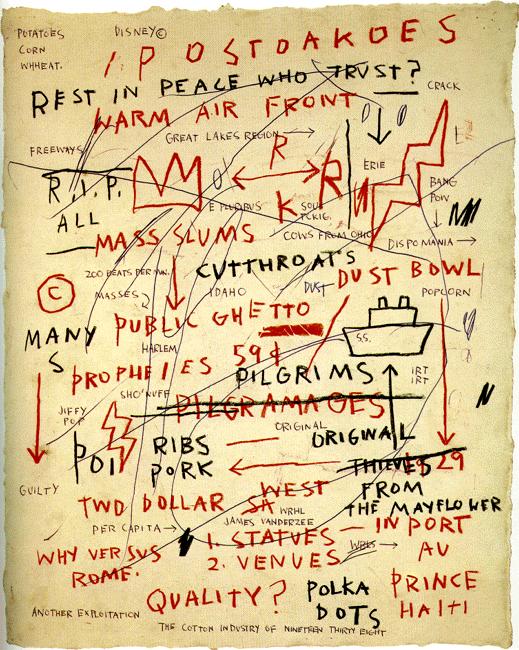 POTATOES
DISNEY©
CORN
WHHEAT.
POSTOAKOES
REST IN PEACE WHO TRUST?
CRACK
WARM AIR FRONT
GREAT LAKES REGION
FREEWAYS
R
ERIE
R.I.P.
R
BANG
POW
E PLURIBUS
K
ALL
COWS FROM OHIO
MASS SLUMS
DISPOMANIA
CUTTHROATS
200 BEATS PER MIN.
DUST BOWL
©
MASSES
IDAHO
DUST
POPCORN
PUBLIC GHETTO
MANY
S
S.S.
HARLEM
59¢
PROPHEIES
PILGRIMS
IRT
IRT
SHO'NUFF
PILGRAMAGES
JIFFY
POP
ORIGINAL
ORIGINAL
POI
RIBS
PORK
THIEVES
29
GUILTY
WEST
FROM
TWO DOLLAR
SA
THE MAYFLOWER
WRHL
JAMES VANDERZEE
PER CAPITA
1. STATUES
IN PORT
WRLS
AU
WHY VERSUS
ROME.
2. VENUES
PRINCE
QUALITY?
POLKA
DOTS
HAITI
ANOTHER EXPLOITATION
THE COTTON INDUSTRY OF NINETEEN THIRTY EIGHT